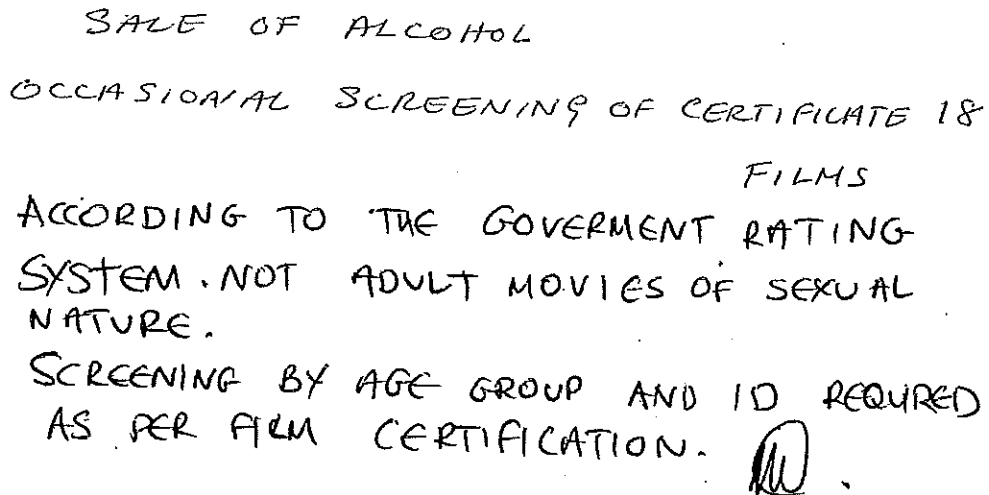 SALE OF ALCOHOL
OCCASIONAL SCREENING OF CERTIFICATE 18
FILMS
ACCORDING TO THE GOVERMENT RATING
SYSTEM. NOT ADULT MOVIES OF SEXUAL
NATURE.
SCREENING BY AGE GROUP AND ID REQURED
AS PER FILM CERTIFICATION.